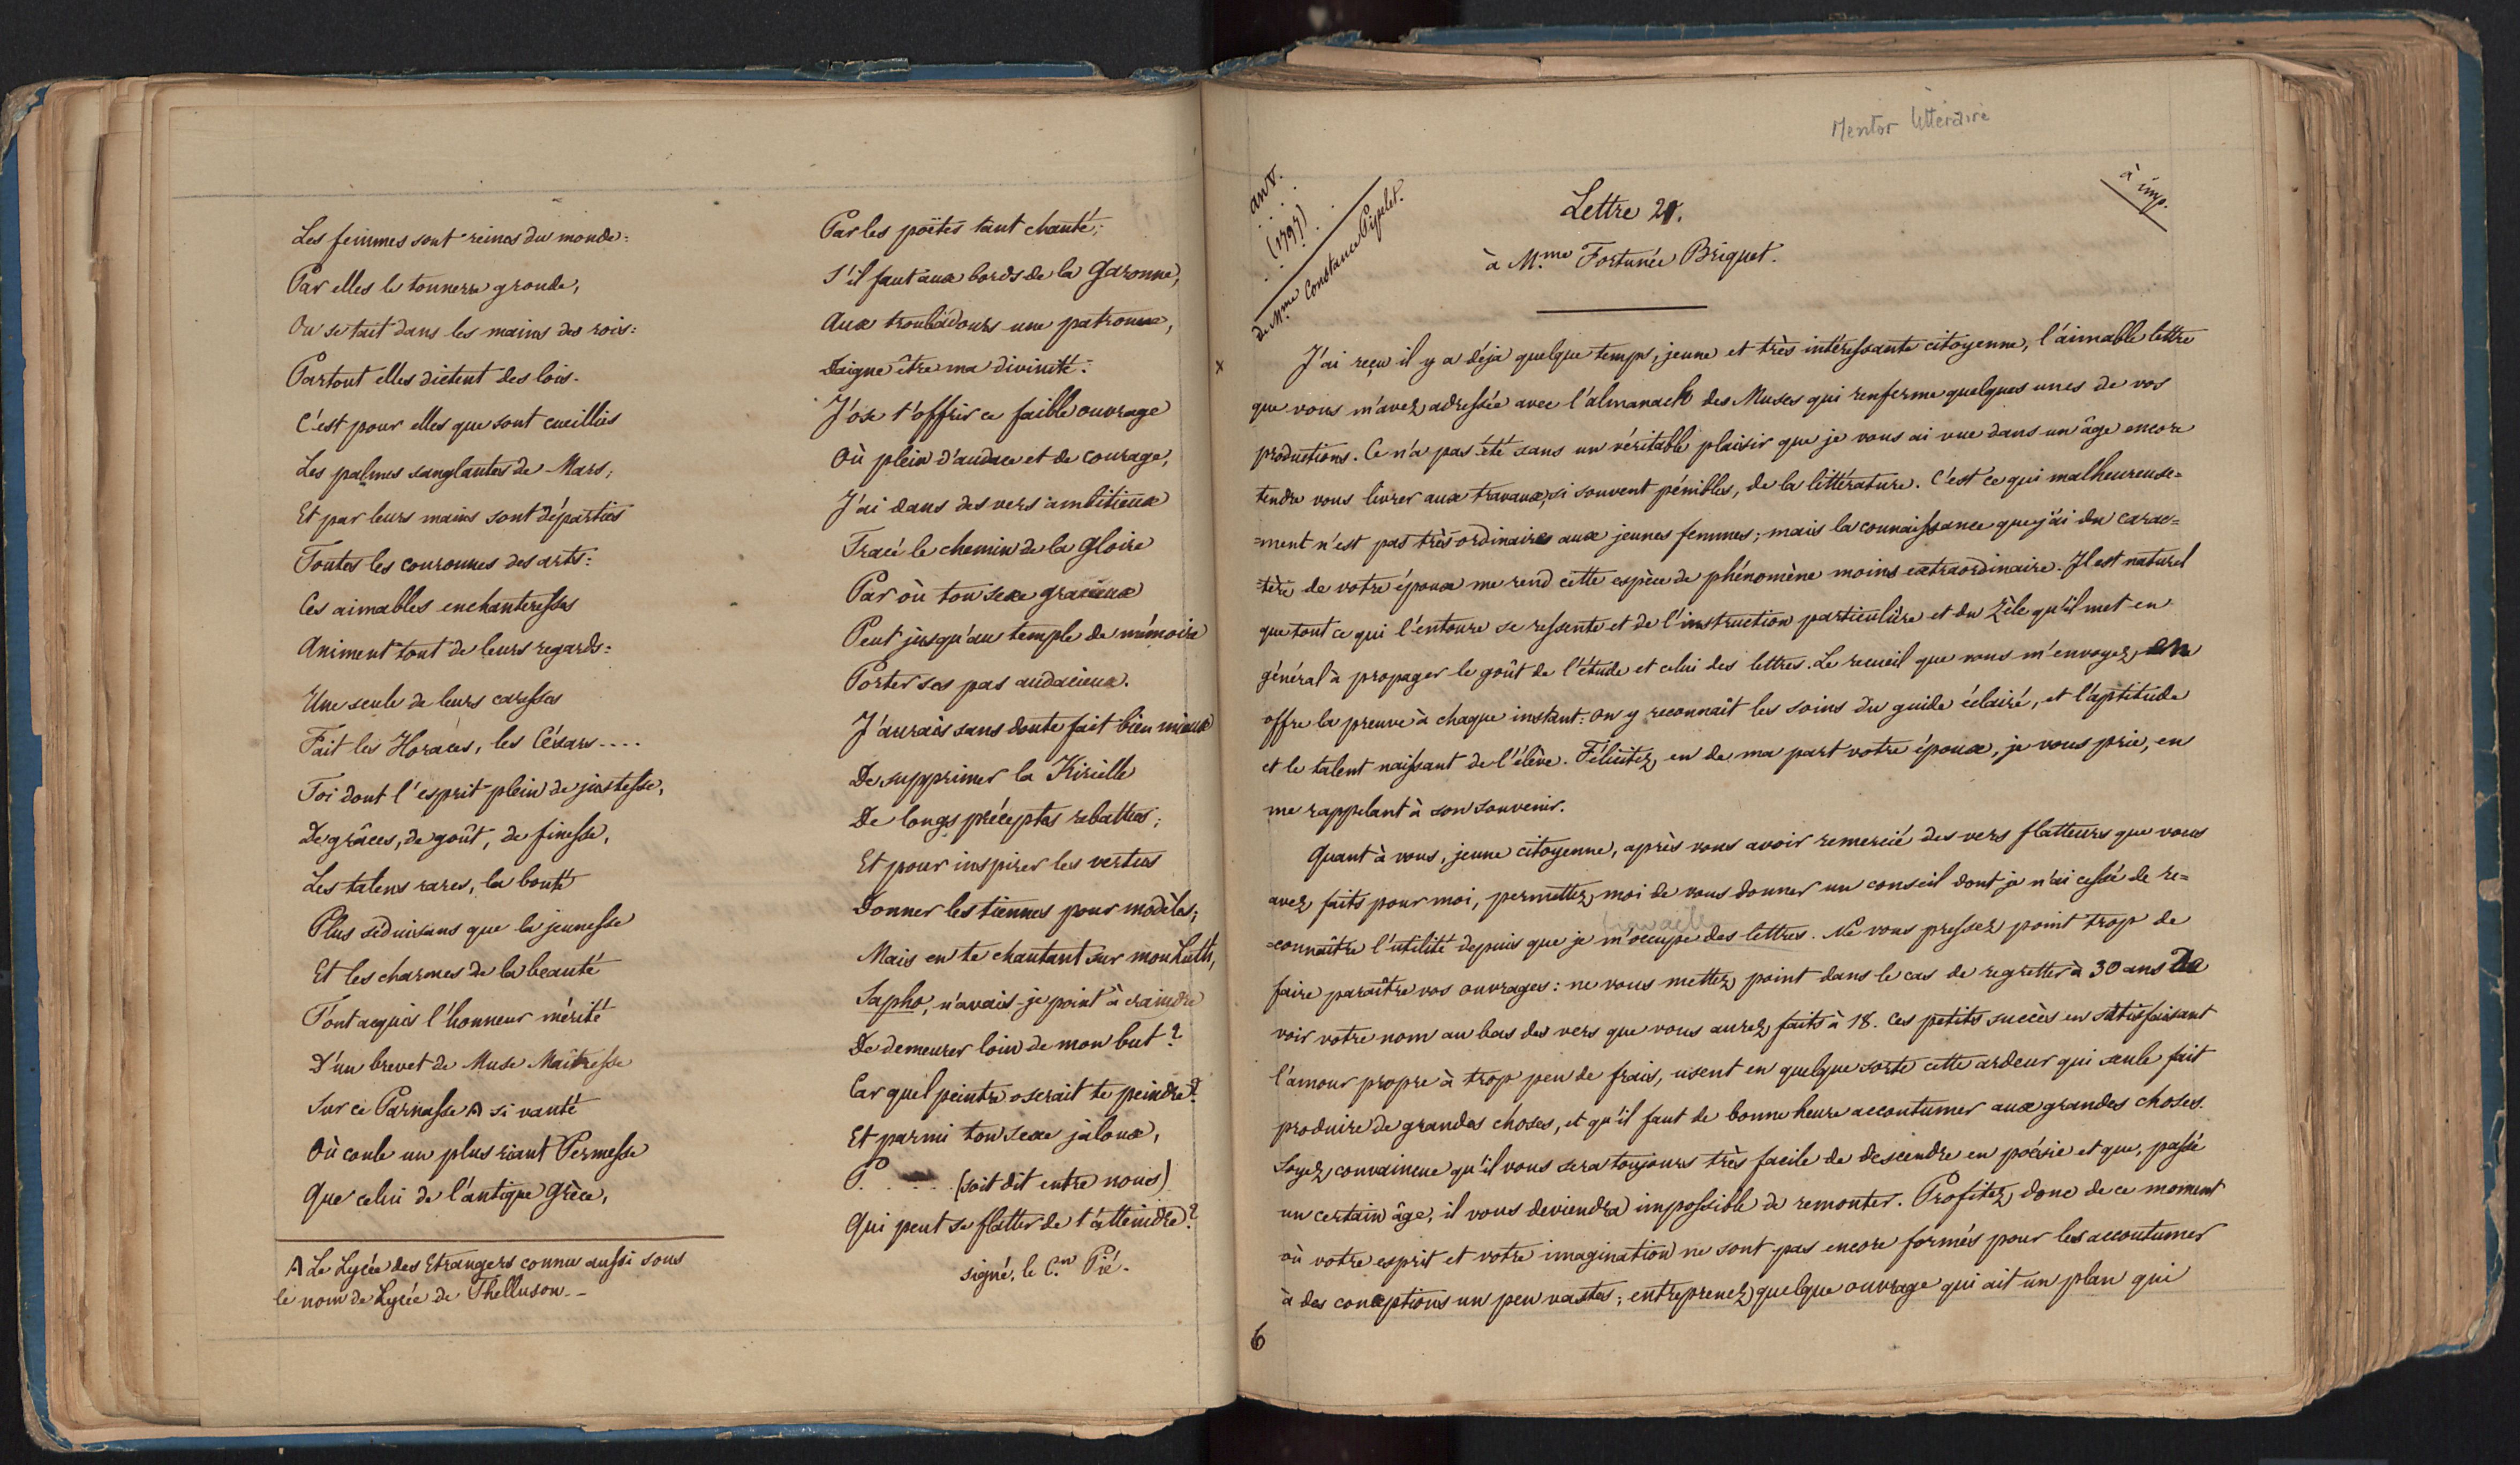 Les femmes sont reines du monde:
Par elles le tonnerre gronde,
Ou se tait dans les mains des rois:
Partout elles dictent des lois.
C'est pour elles que sont cueillies
Les palmes sanglantes de Mars,
Et par leurs mains sont départies
Toutes les couronnes des arts:
Ces aimables enchanteresses
Animent tout de leurs regards:
Une seule de leurs caresses
Fait les Horaces, les Césars....
Toi dont l'esprit plein de justesse,
De grâces, de goût, de finesse,
Les talens rares, la bonté
Plus séduisans que la jeunesse
Et les charmes de la beauté
T'ont acquis l'honneur mérité
D'un brevet de Muse Maîtresse
Sur ce Parnasse A si vanté
Où coule un plus riant Permesse
Que celui de l'antique Grèce,
A Le Lycée des Etrangers connu aussi sous
le nom de Lycée de Thelluson.-
Par les poëtes tant chanté;
S'il faut aux bords de la Garonne,
Aux troubadours une patronne,
Daigne être ma divinité:
J'ose t'offrir ce faible ouvrage
Où plein d'audace et de courage,
J'ai dans des vers ambitieux
Tracé le chemin de la gloire
Par où ton sexe gracieux
Peut jusqu'au temple de mémoire
Porter ses pas audacieux.
J'aurais sans doute fait bien mieux
De supprimer la Kirielle
De longs préceptes rebattus;
Et pour inspirer les vertus
Donner les tiennes pour modèles;
Mais en te chantant sur mon Luth,
Sapho, n'avais-je point à craindre
De demeurer loin de mon but?
Car quel peintre oserait te peindre?
Et parmi ton sexe jaloux,
P..... (soit dit entre nous)
Qui peut se flatter de t'atteindre?
signé, le C.en Pié.
Mentor littéraire
an V.
(1797)
de Mme Constance Pipelet.
à imp.
Lettre 21.
à M.me Fortunée Briquet.
x
J'ai reçu il y a déja quelque temps, jeune et très intéressante citoyenne, l'aimable lettre
que vous m'avez adressée avec l'almanach des Muses qui renferme quelques unes de vos
productions. Ce n'a pas été sans un véritable plaisir que je vous ai vue dans un âge encore
tendre vous livrer aux travaux, si souvent pénibles, de la littérature. C'est ce qui malheureuse=
=ment n'est pas très ordinaire aux jeunes femmes; mais la connaissance que j'ai du carac=
=tère de votre époux me rend cette espèce de phénomène moins extraordinaire. Il est naturel
que tout ce qui l'entoure se ressente et de l'instruction particulière et du zèle qu'il met en
général à propager le goût de l'étude et celui des lettres. Le recueil que vous m'envoyez en
offre la preuve à chaque instant: on y reconnaît les soins du guide éclairé, et l'aptitude
et le talent naissant de l'élève. Félicitez en de ma part votre époux, je vous prie, en
me rappelant à son souvenir.
Quant à vous, jeune citoyenne, après vous avoir remercié des vers flatteurs que vous
avez faits pour moi, permettez moi de vous donner un conseil dont je n'ai cessé de re=
=connaître l'utilité depuis que je m'occupe des lettres. Ne vous pressez point trop de
faire paraître vos ouvrages: ne vous mettez point dans le cas de regretter à 30 ans De
voir votre nom au bas des vers que vous aurez faits à 18. Ces petits succès en satisfaisant
l'amour propre à trop peu de frais, usent en quelque sorte cette ardeur qui seule fait
produire de grandes choses, et qu'il faut de bonne heure accoutumer aux grandes choses.
Soyez convaincue qu'il vous sera toujours très facile de descendre en poésie et que, passé
un certain âge, il vous deviendra impossible de remonter. Profitez donc de ce moment
où votre esprit et votre imagination ne sont pas encore formés pour les accoutumer
à des conceptions un peu vastes; entreprenez quelque ouvrage qui ait un plan qui
6